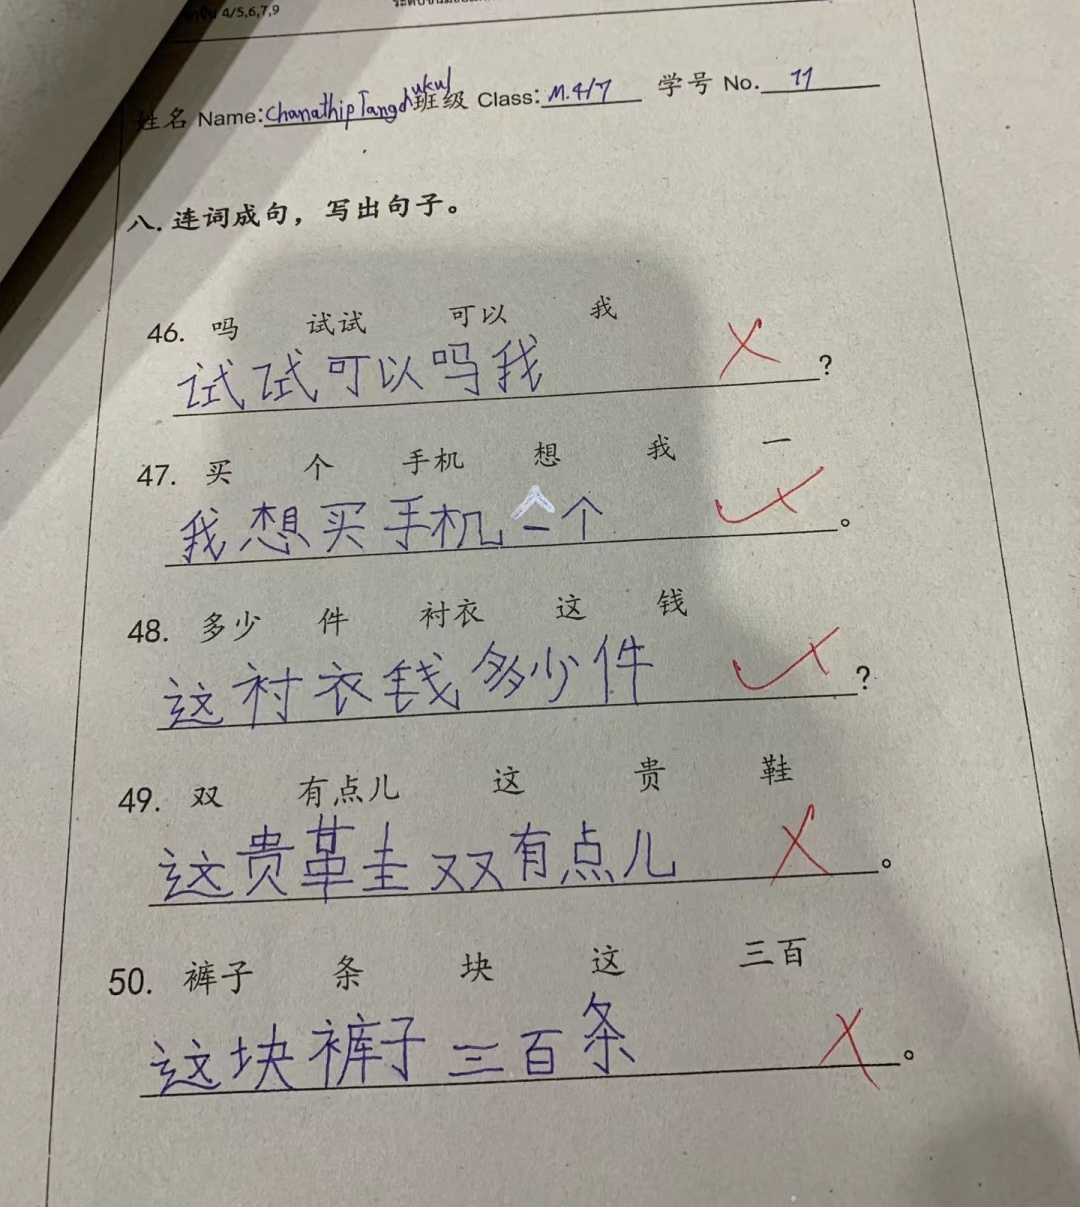 4/5,6,7,9
姓名 Name: Chanathip Tangchukul 班级 Class: M.4/7 学号 No. 11
八. 连词成句，写出句子。
46. 吗 试试 可以 我
试试可以吗我 ?
47. 买 个 手机 想 我 一
我想买手机一个 。
48. 多少 件 衬衣 这 钱
这衬衣钱多少件 ?
49. 双 有点儿 这 贵 鞋
这贵鞋双有点儿 。
50. 裤子 条 块 这 三百
这块裤子三百条 。